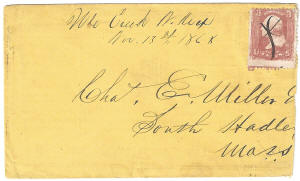 Creek N. Mex
Nov. 13th 1868
Chas. E. Miller E
South Hadle
Mass